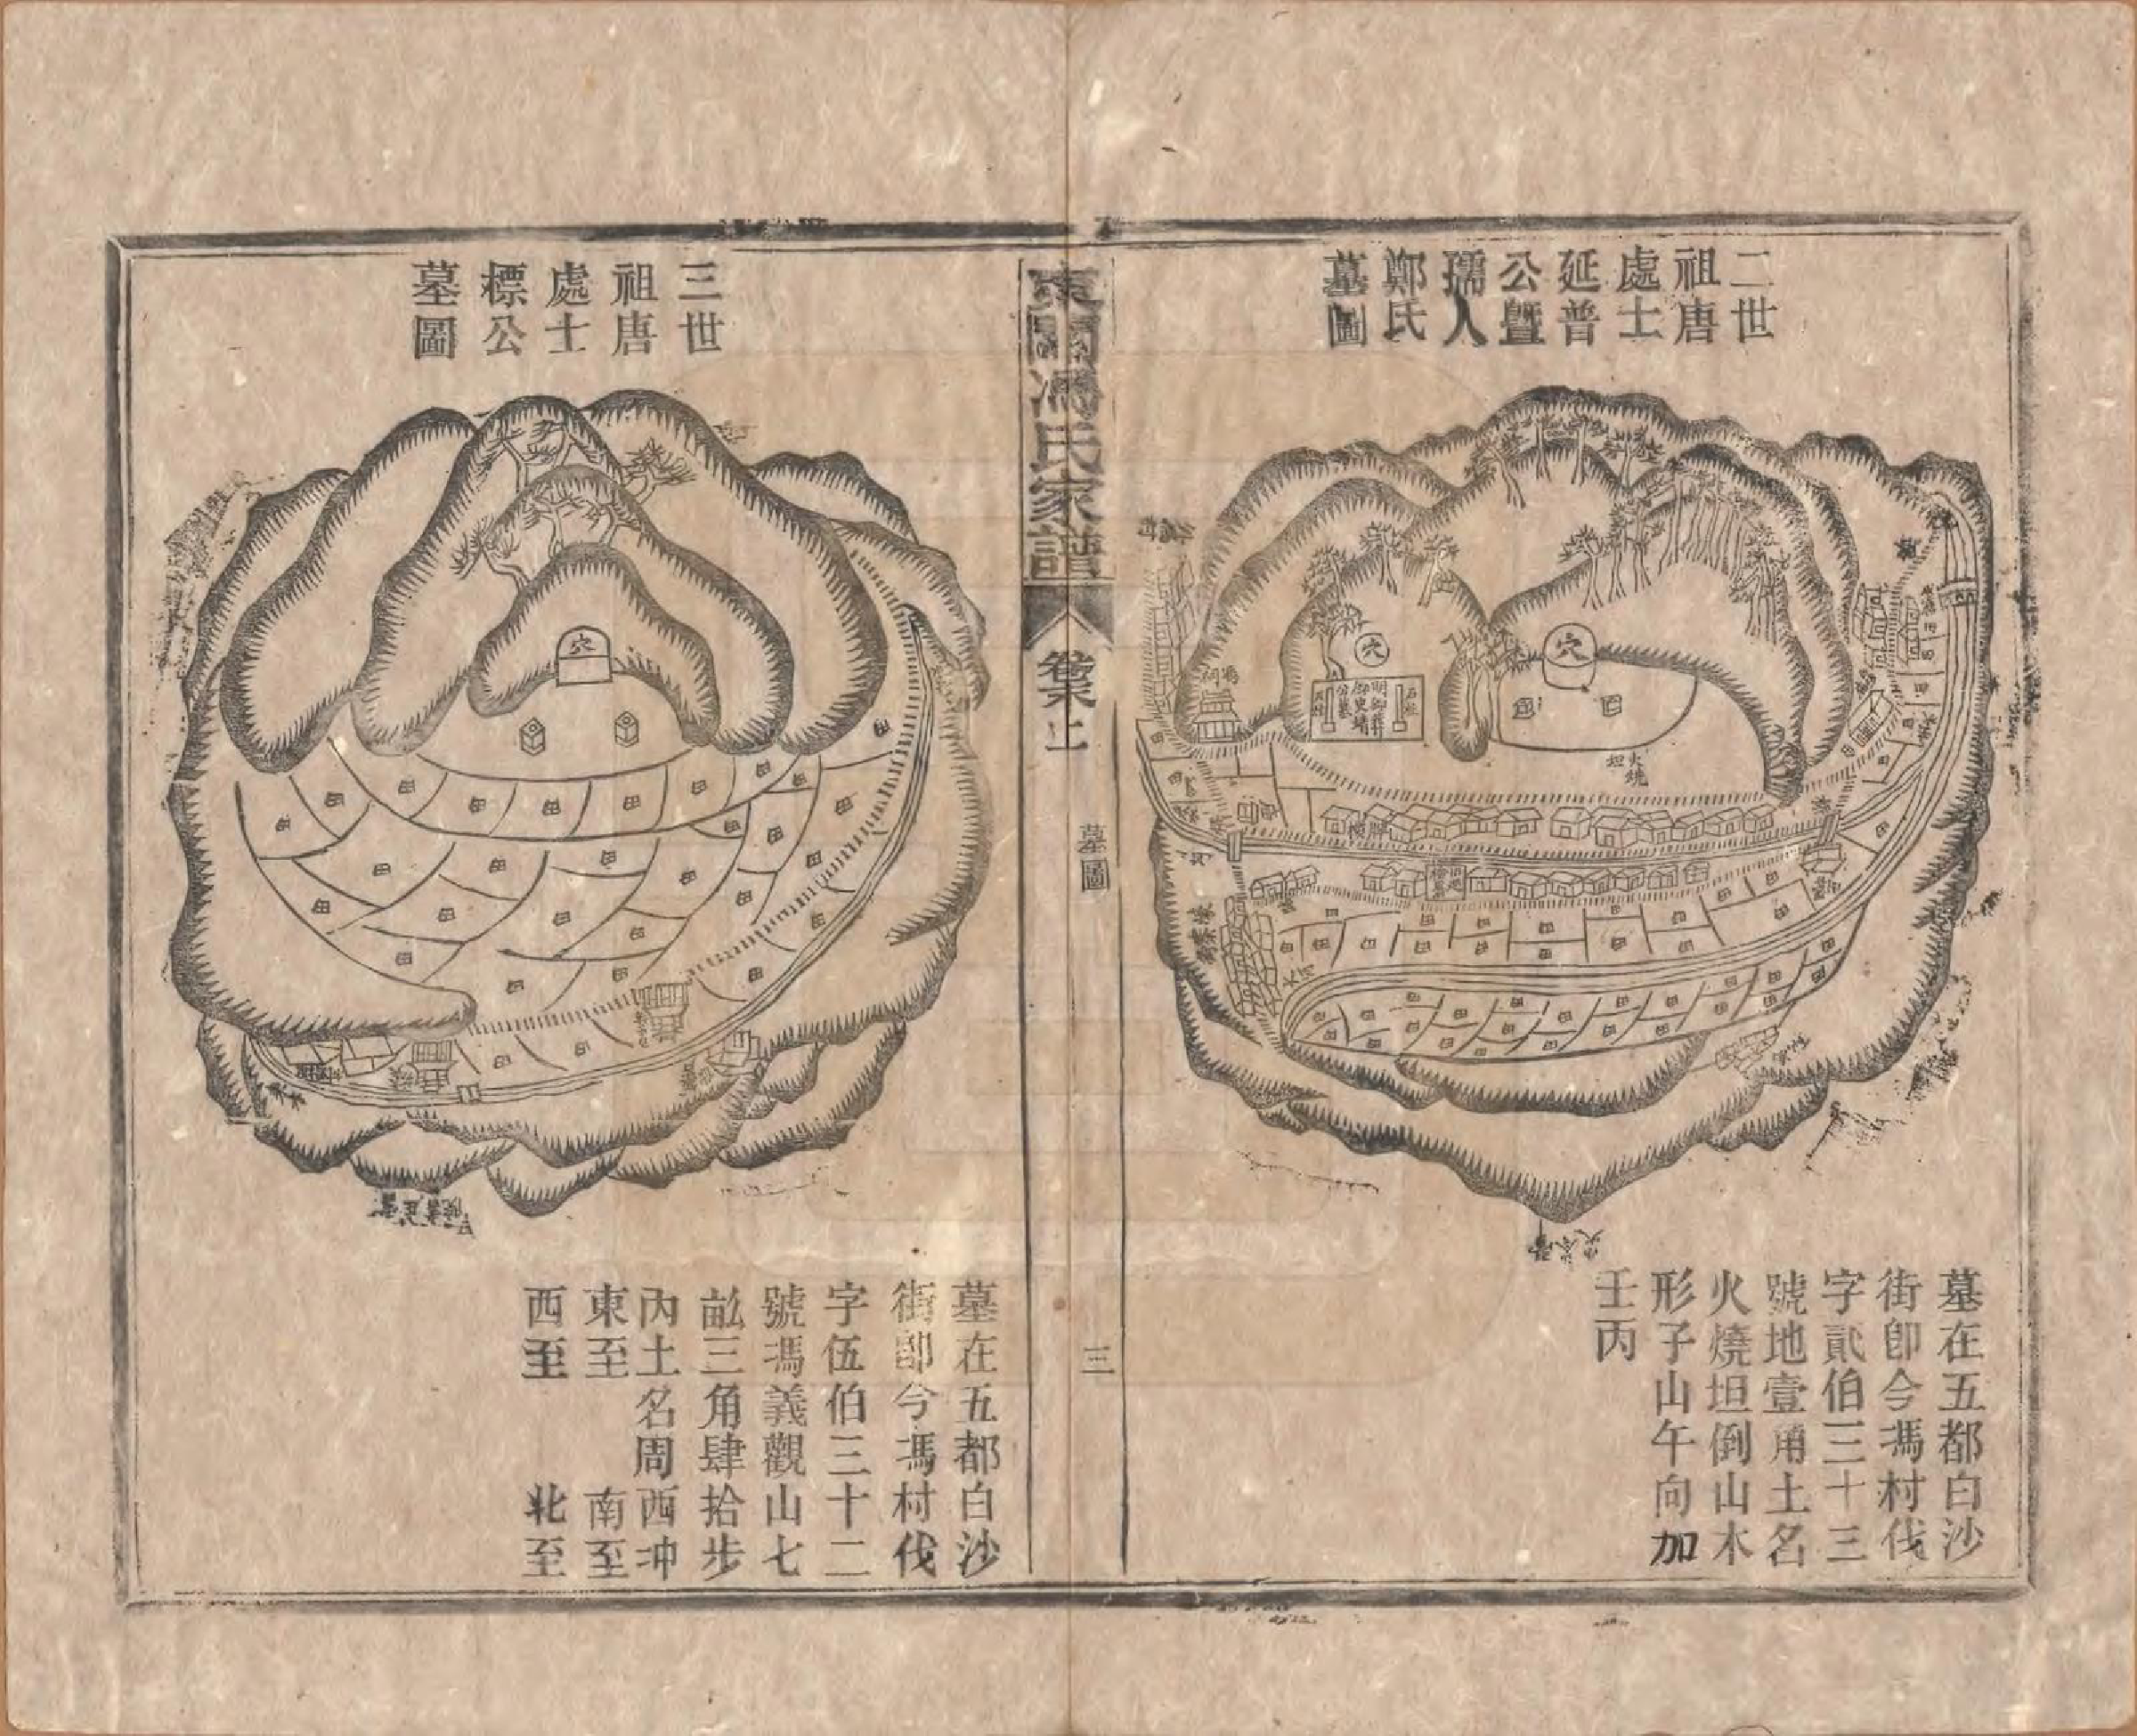 二世
祖唐
處士
延普
公曁
孺人
鄭氏
墓圖
穴
穴
火燒
坦
石柱
明卸葬
御史靖
公墓
牌樓
大河
墓在五都白沙
街卽今馮村伐
字貳伯三十三
號地壹角土名
火燒坦倒山木
形子山午向加
壬丙
東關馮氏家譜
卷末上
墓圖
三
三世
祖唐
處士
標公
墓圖
穴
墓在五都白沙
街卽今馮村伐
字伍伯三十二
號馮義觀山七
畝三角肆拾步
內土名周西冲
東至 南至
西至 北至